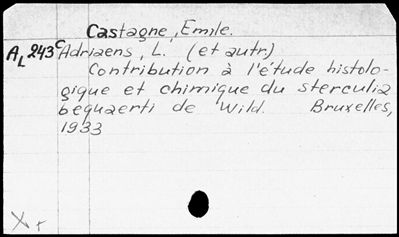 Castagne, Emile.
AL 243c Adriaens, L. (et autr.)
Contribution à l'étude histolo-
gique et chimique du sterculia
bequaerti de Wild. Bruxelles,
1933